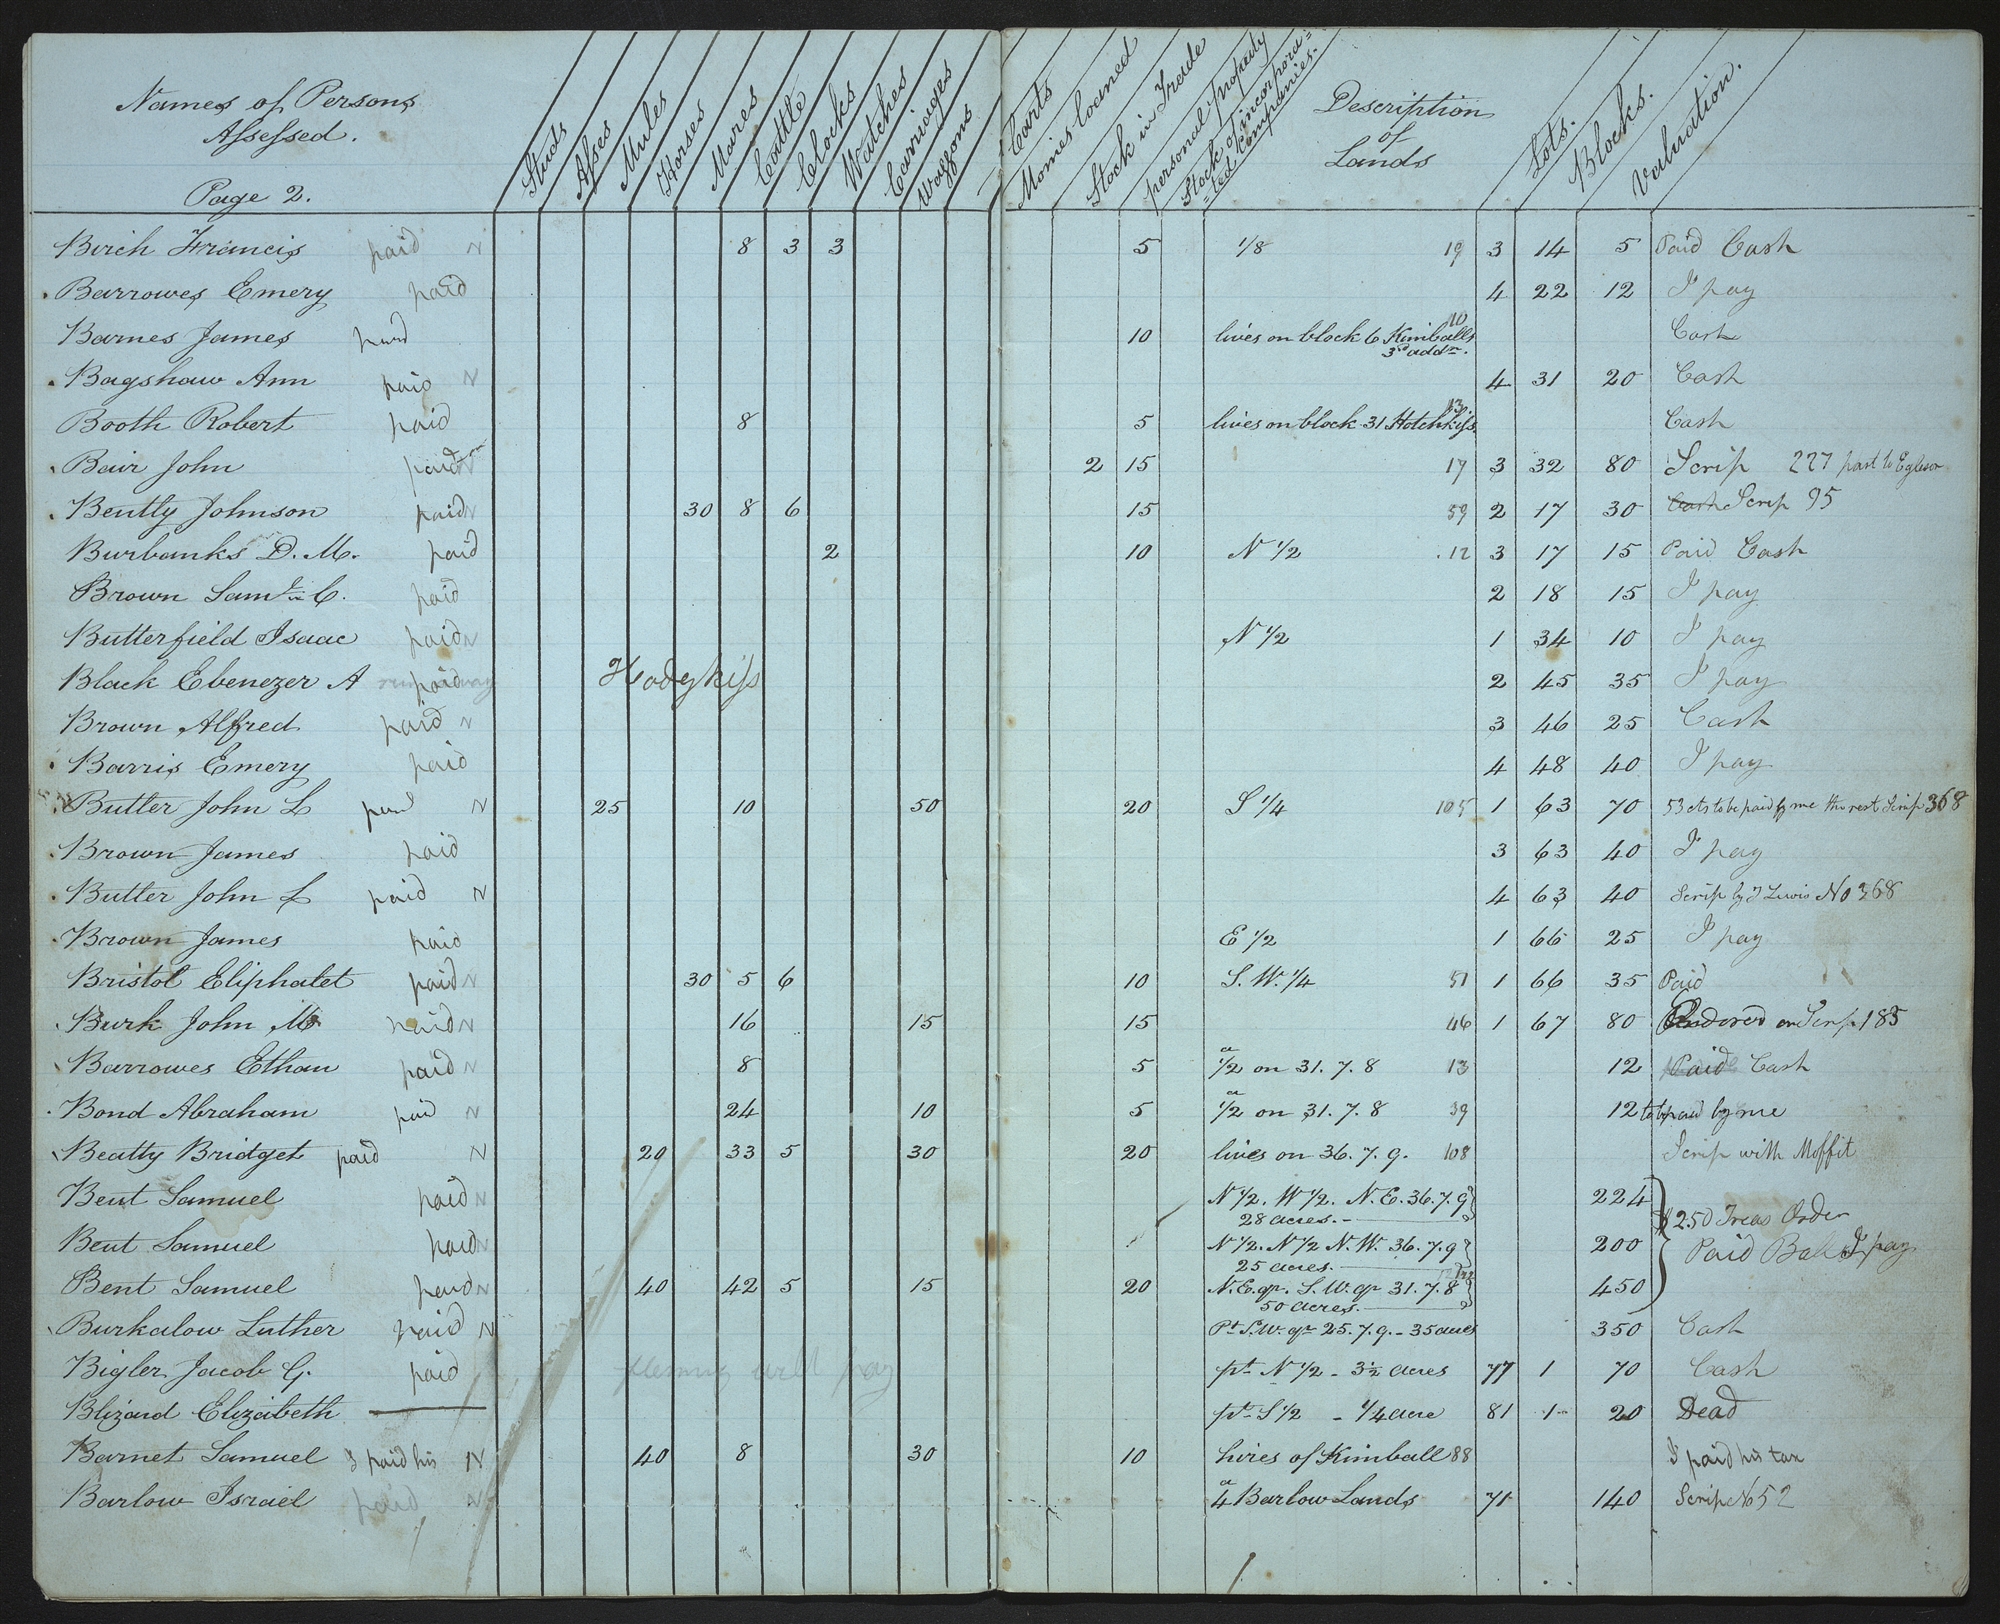 Names of Persons
Assessed.
Page 2.
Studs
Asses
Mules
Horses
Mares
Cattle
Clocks
Watches
Carriages
Waggons
Carts
Monies loaned
Stock in Trade
personal property
Stock of incorpora=
=ted Companies.
Description
of
Lands
Lots.
Blocks.
Valuation.
Birch Francis paid N 8 3 3 5 1/8 19 3 14 5 Paid Cash
Barrowes Emery paid 4 22 12 I pay
Barnes James paid 10 lives on block 6 Kimballs 10 Cash
3rd addn.
Bagshaw Ann paid N 4 31 20 Cash
Booth Robert paid 8 5 lives on block 31 Hotchkiss. 13 Cash
Bair John paid N 2 15 17 3 32 80 Scrip 227 part to Egleson
Bently Johnson paid N 30 8 6 15 59 2 17 30 Cash Scrip 95
Burbanks D. M. paid 2 10 N 1/2 12 3 17 15 Paid Cash
Brown Saml. C. paid 2 18 15 I pay
Butterfield Isaac paid N N 1/2 1 34 10 I pay
Black Ebenezer A paid Hodgkiss 2 45 35 I pay
Brown Alfred paid N 3 46 25 Cash
Barris Emery paid 4 48 40 I pay
Butler John L paid N 25 10 50 20 S 1/4 105 1 63 70 53 cts to be paid by me the rest Scrip 368
Brown James paid 3 63 40 I pay
Butler John L paid N 4 63 40 Scrip by T Lewis No 368
Brown James paid E 1/2 1 66 25 I pay
Bristol Eliphalet paid N 30 5 6 10 S. W. 1/4 51 1 66 35 Paid
Burk John M paid N 16 15 15 46 1 67 80 Endorsed on Scrip 185
Barrowes Ethan paid N 8 5 a 1/2 on 31. 7. 8 13 12 Paid Cash
Bond Abraham paid N 24 10 5 a 1/2 on 31. 7. 8 39 12 to be paid by me
Beatty Bridget paid N 20 33 5 30 20 lives on 36. 7. 9. 108 Scrip with Moffit
Bent Samuel paid N N 1/2. W 1/2. N. E. 36. 7. 9 224
28 acres. $2.50 Treas Order
Bent Samuel paid N N 1/2. N 1/2 N. W. 36. 7. 9 200 Paid Bal I pay
25 acres.
Bent Samuel paid N 40 42 5 15 20 N. E. qr. S. W. qr 31. 7. 8 450
50 acres.
Burkalow Luther paid N Pt S. W. qr 25. 7. 9. - 35 acres 350 Cash
Bigler Jacob G. paid pt N 1/2 - 3 1/2 acres 77 1 70 Cash
Blizard Elizabeth pt S 1/2 - 1/4 acre 81 1 20 Dead
Barnet Samuel I paid his N 40 8 30 10 hires of Kimball 88 I paid his tax
Barlow Israel paid N a 4 Barlow Lands 71 140 Scrip No 52